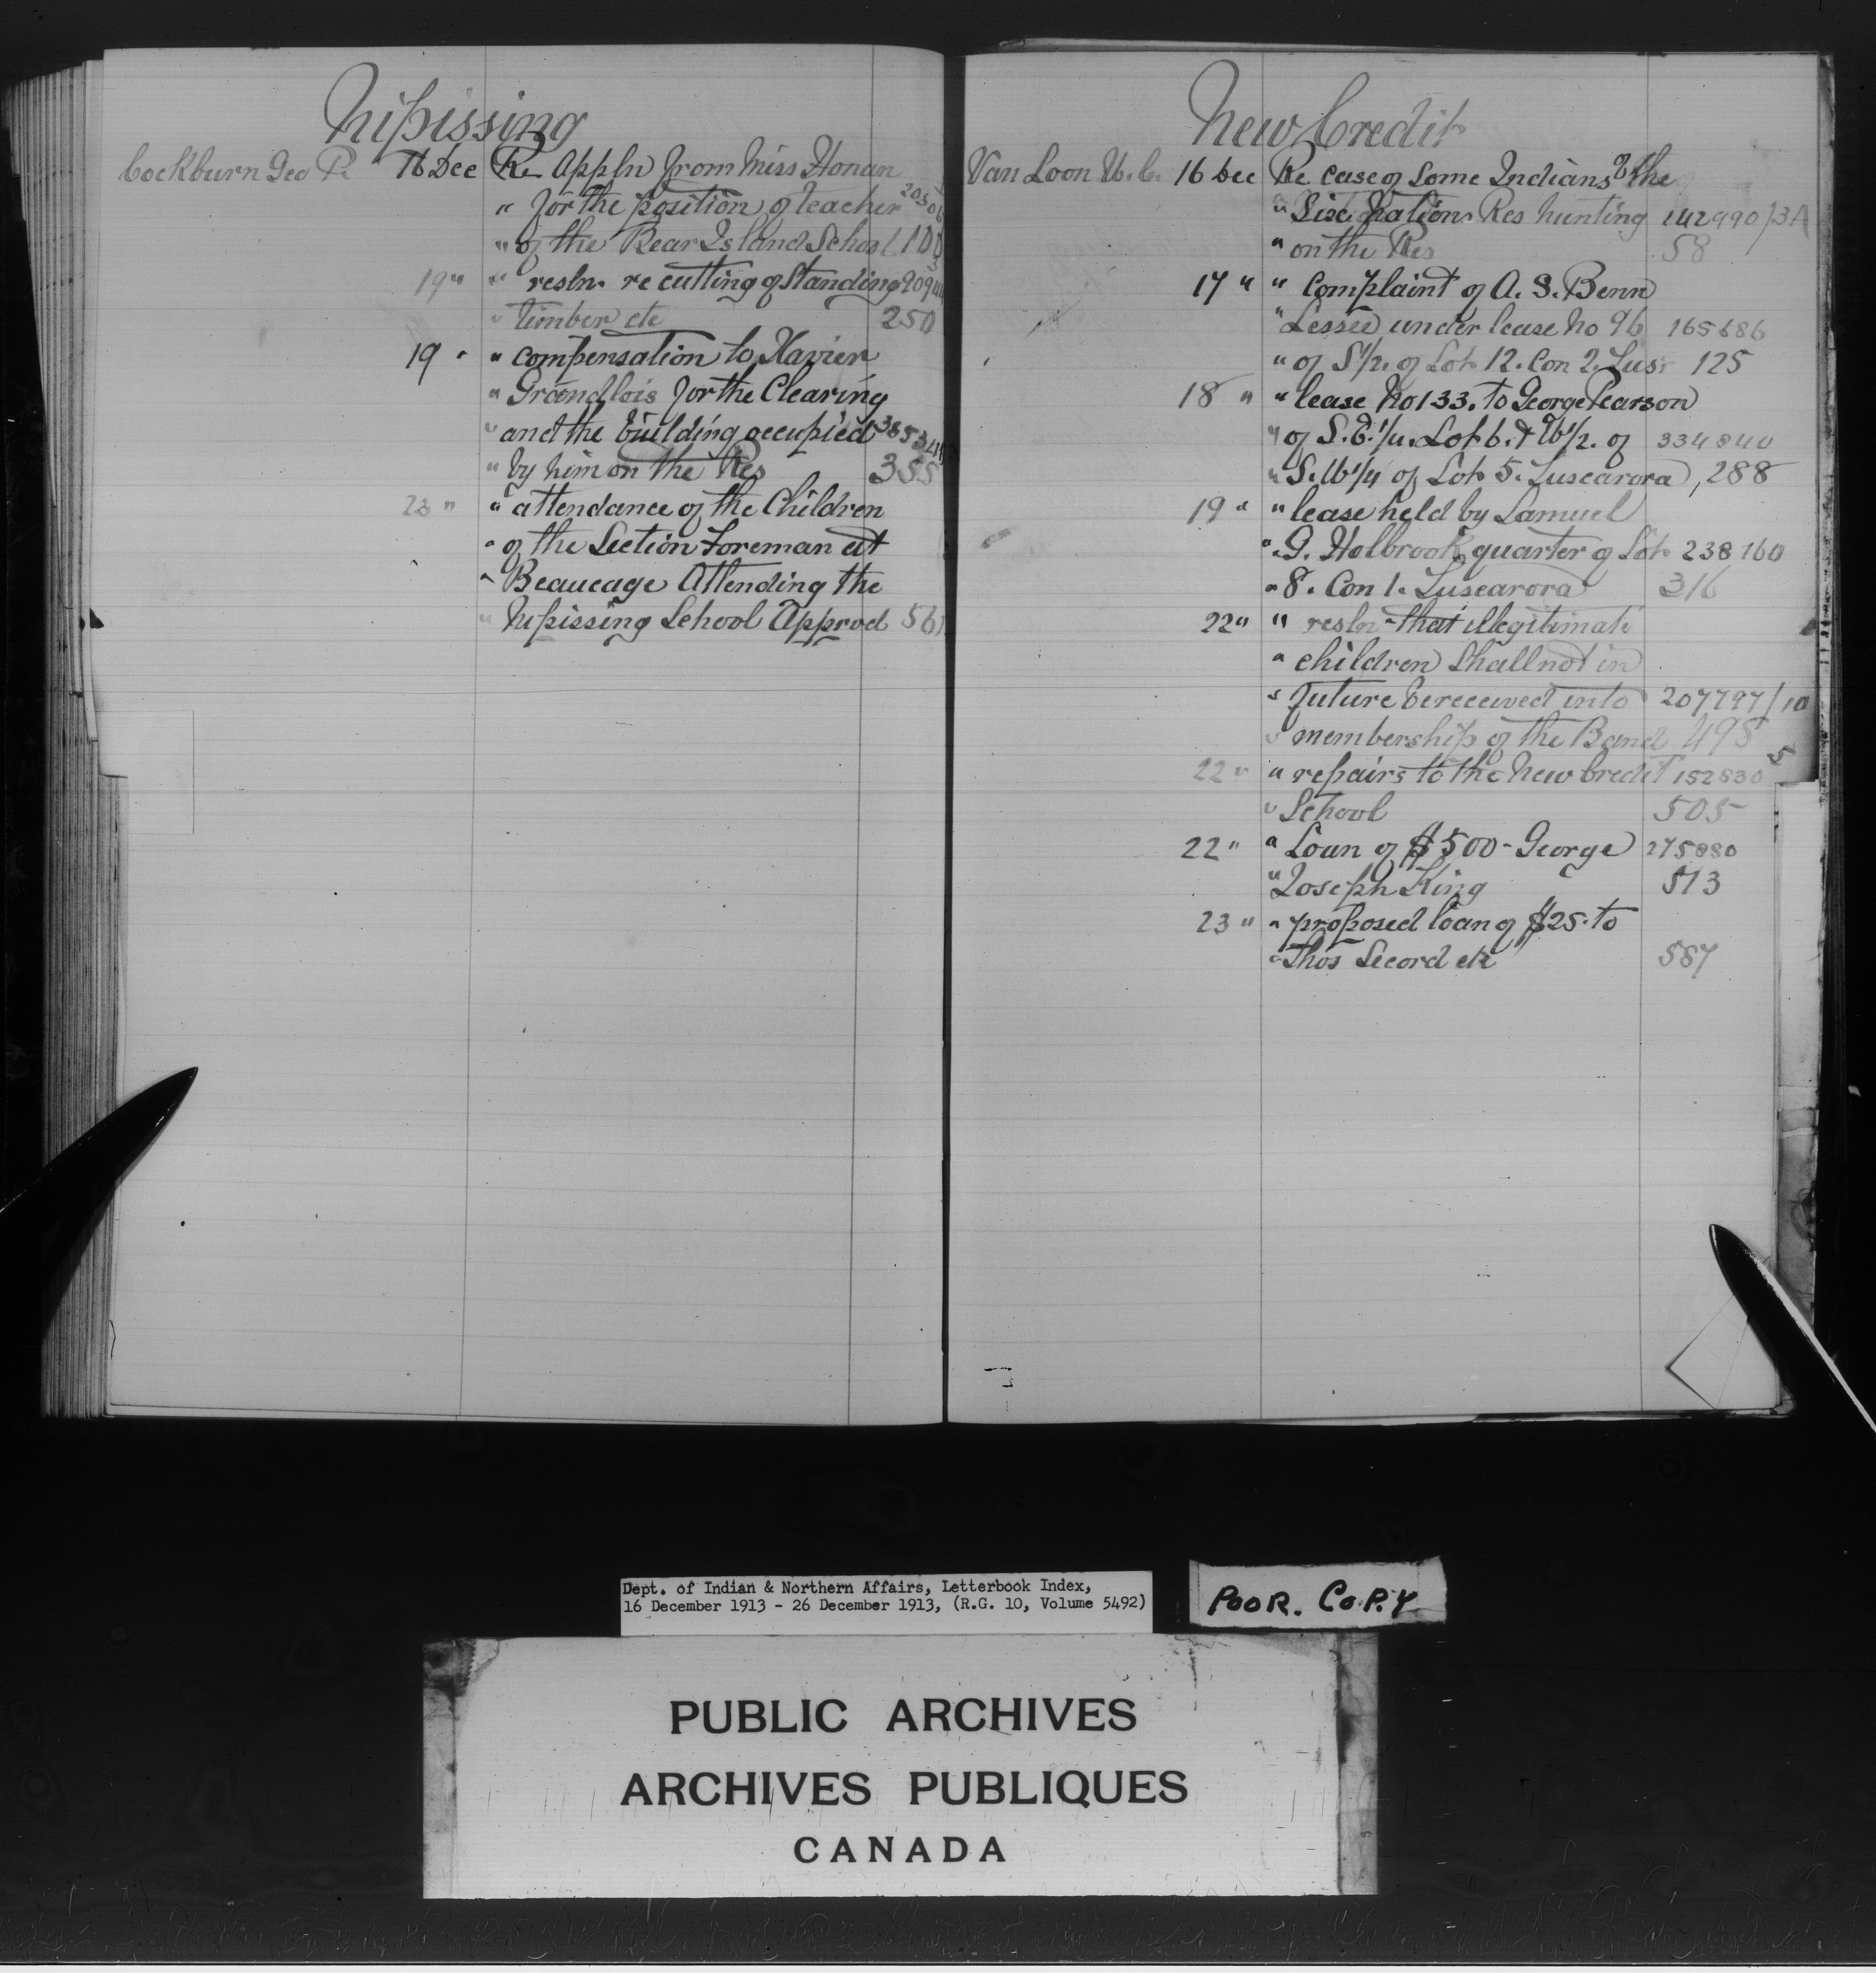 Nipissing
Cockburn Geo P. 16 Dec Re Appln from Miss Honan
" for the position of teacher
" of the Bear Island School 100
19 " " resln. re cutting of standing
" timber etc 250
19 " " compensation to Xavier
" Grandlois for the Clearing
" and the building occupied
" by him on the Res 355
23 " " attendance of the Children
" of the Section Foreman at
" Beaucage Attending the
" Nipissing School Approd 561
New Credit
Van Loon W.C. 16 Dec Re case of some Indians of the
" Six Nations Res hunting 142990/3A
" on the Res 58
17 " " Complaint of A. S. Benn
" Lessee under lease No 96 165686
" of S1/2. of Lot 12. Con 2. Tus: 125
18 " " lease No 133. to George Pearson
" of S.E.1/4. Lot 6. & W1/2. of 334840
" S.W1/4 of Lot 5. Tuscarora, 288
19 " " lease held by Samuel
" G. Holbrook, quarter of Lot 238160
" 8. Con 1. Tuscarora 316
22 " " resln that illegitimate
" children shall not in
" future be received into 207797/10
" membership of the Band 498
22 " " repairs to the New Credit 152830 5
" School 505
22 " " Loan of $500 - George 275880
" Joseph King 513
23 " " proposed loan of $25. to
" Thos Secord etc 587
Dept. of Indian & Northern Affairs, Letterbook Index,
16 December 1913 - 26 December 1913, (R.G. 10, Volume 5492)
POOR. COPY
PUBLIC ARCHIVES
ARCHIVES PUBLIQUES
CANADA